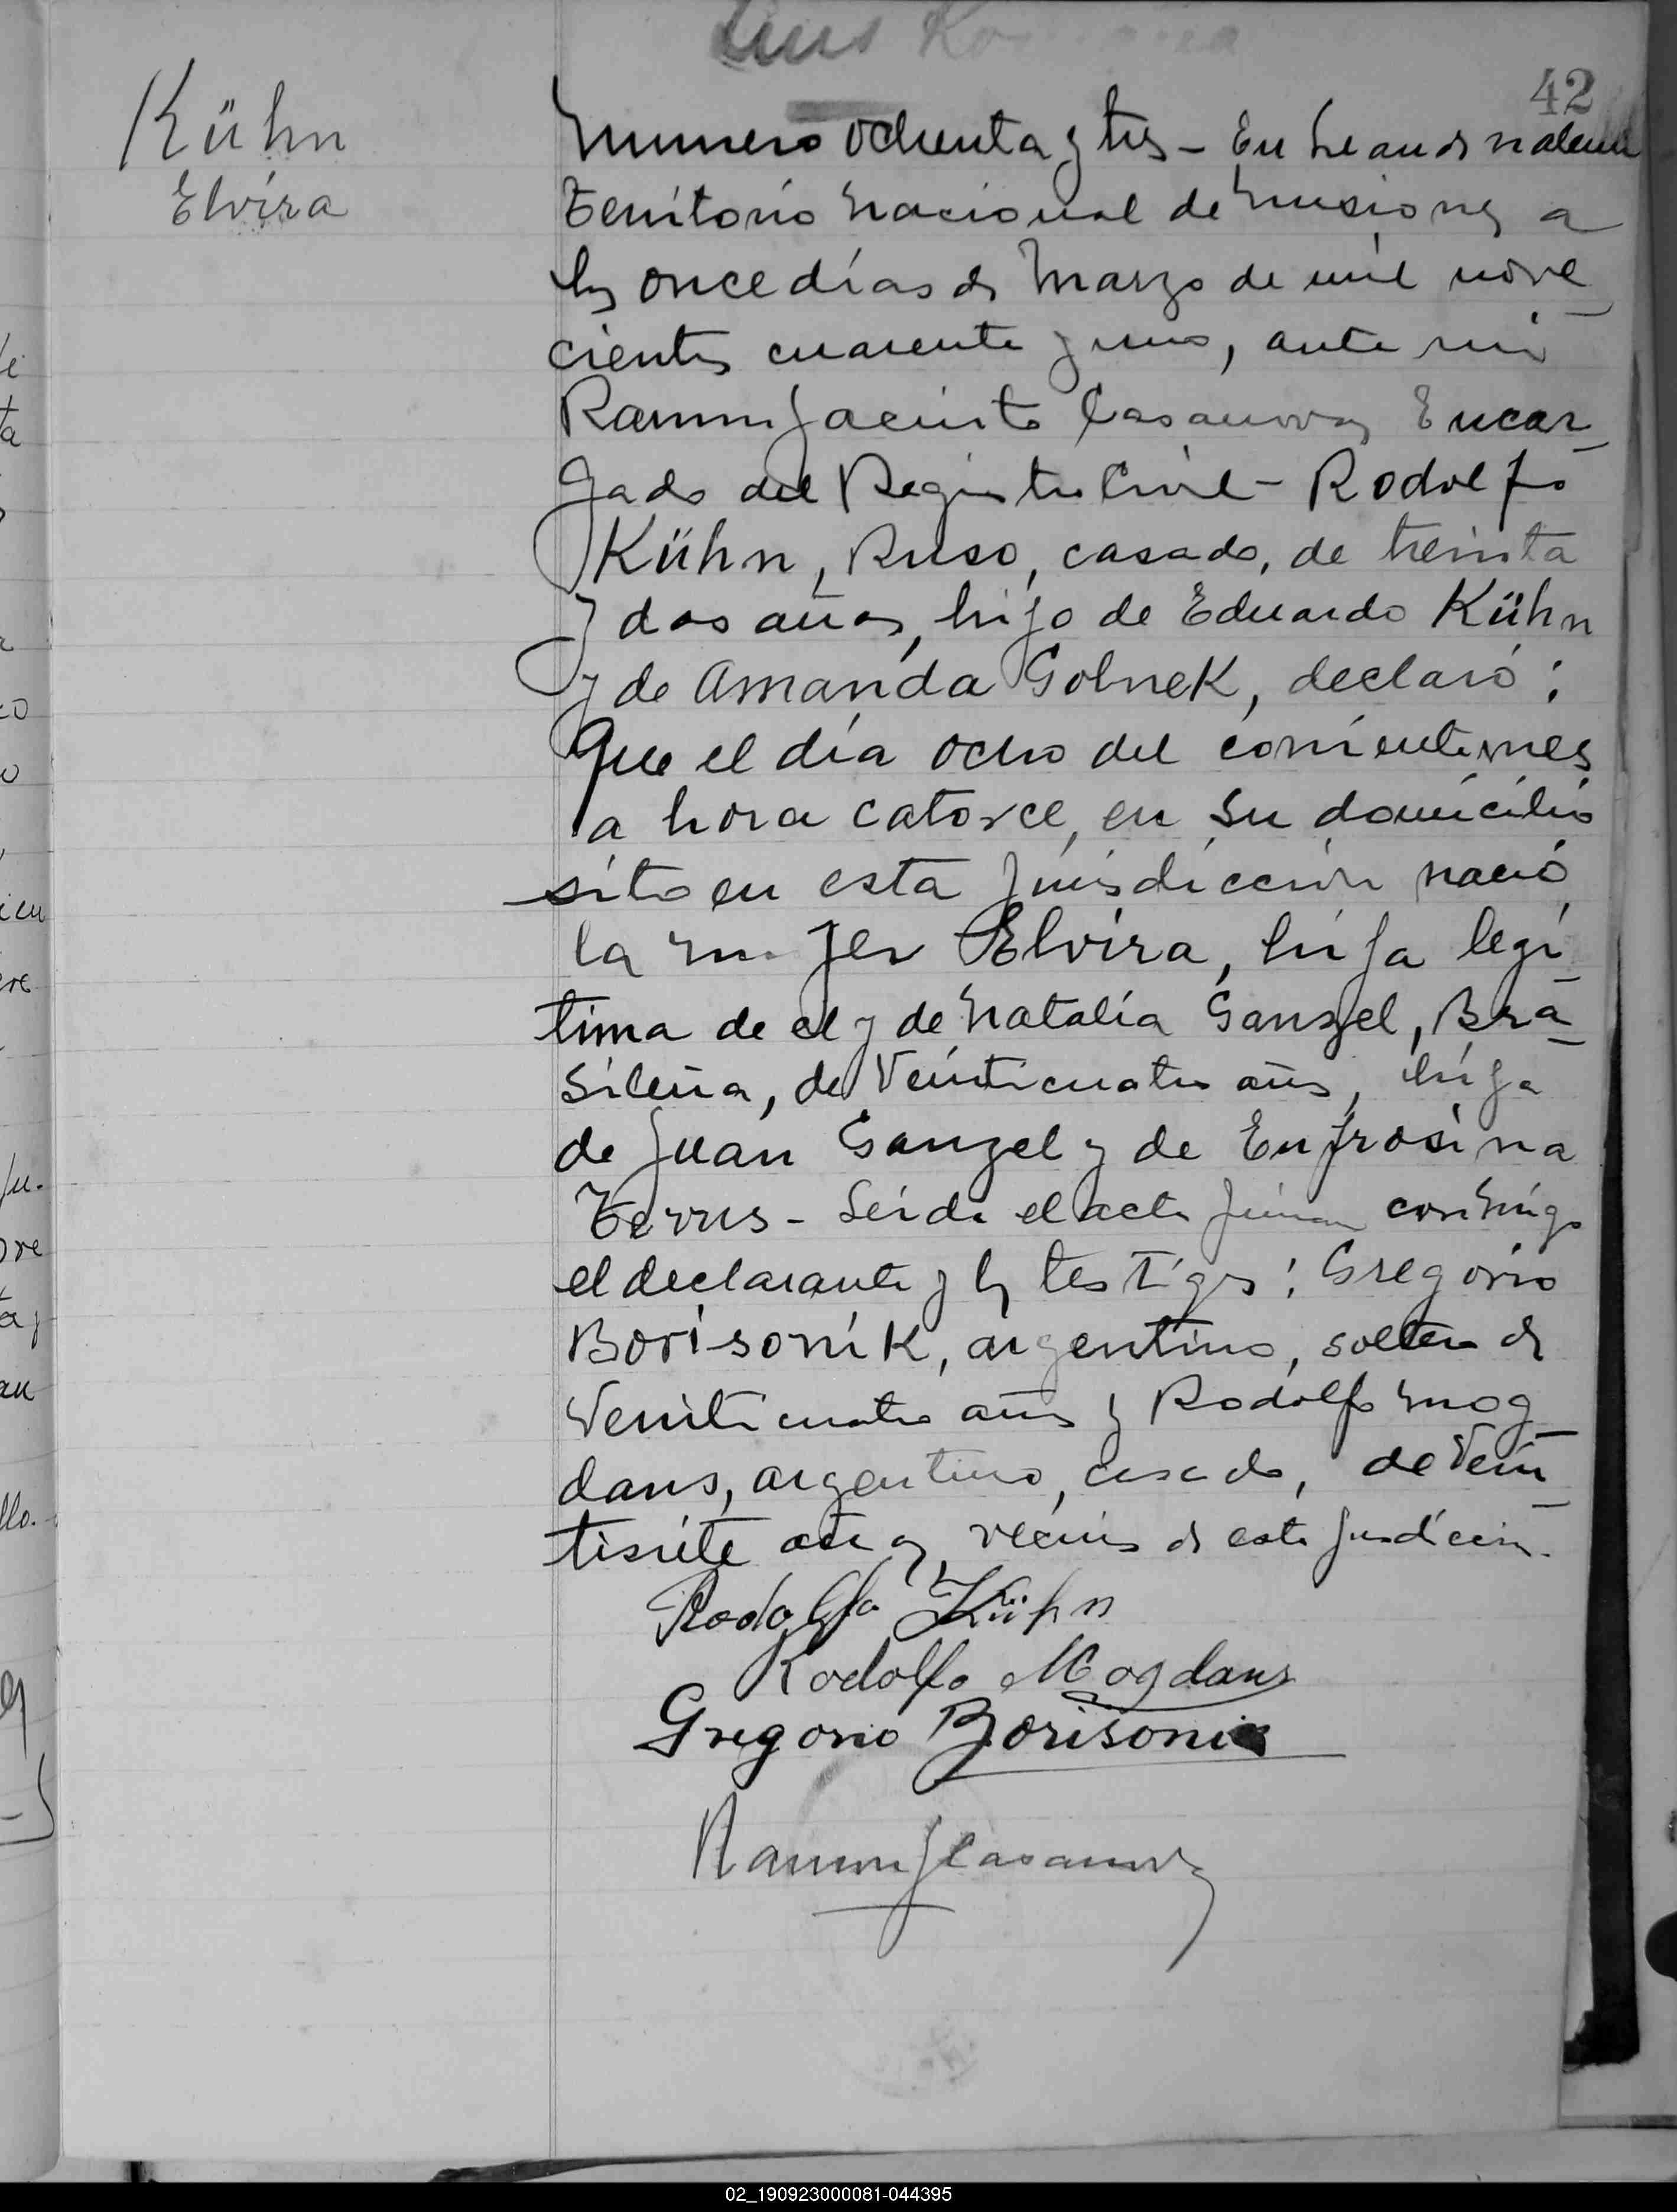 Luis
42
Kühn
Elvira
Numero ochenta y tres - En Leandro N alem
Territorio Nacional de Misiones a
los once días de Marzo de mil nove
cientos cuarenta y uno, ante mi
Ramon Jacinto Casanova, Encar
gado del Registro Civil - Rodolfo
Kühn, Ruso, casado, de treinta
y dos años, hijo de Eduardo Kühn
y de Amanda Golnek, declaró:
Que el día ocho del corriente mes
a hora catorce, en su domicilio
sito en esta jurisdicción nació
la mujer Elvira, hija legi
tima de el y de Natalia Ganzel, Bra
sileña, de Veinticuatro años, hija
de Juan Ganzel y de Eufrosina
Ferrus - Leida el acta firman conmigo
el declarante y los testigos: Gregorio
Borisonik, argentino, soltero de
Veinticuatro años y Rodolfo Mog
dans, argentino, casado, de Vein
tisiete años, vecinos de esta jurisdiccion.
Rodolfo Kühn
Rodolfo Mogdans
Gregorio Borisonik
Ramon J Casanova
02_190923000081-044395